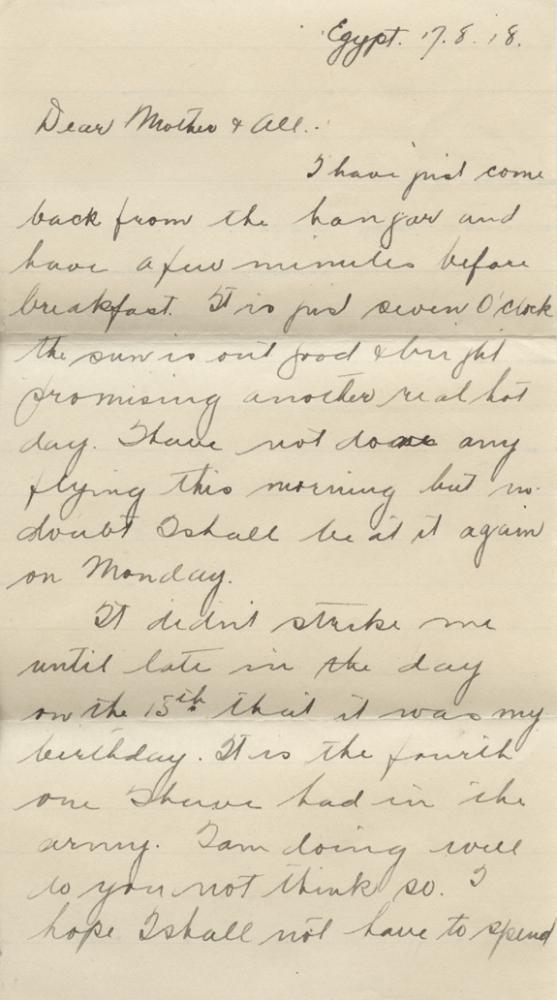 Egypt. 17.8.18.
Dear Mother & All.:
I have just come
back from the hangar and
have a few minutes before
breakfast. It is just seven O'clock
the sun is out good & bright
promising another real hot
day. I have not done any
flying this morning but no
doubt I shall be at it again
on Monday.
It didn't strike me
until late in the day
on the 15th that it was my
birthday. It is the fourth
one I have had in the
army. I am doing well
do you not think so. I
hope I shall not have to spend